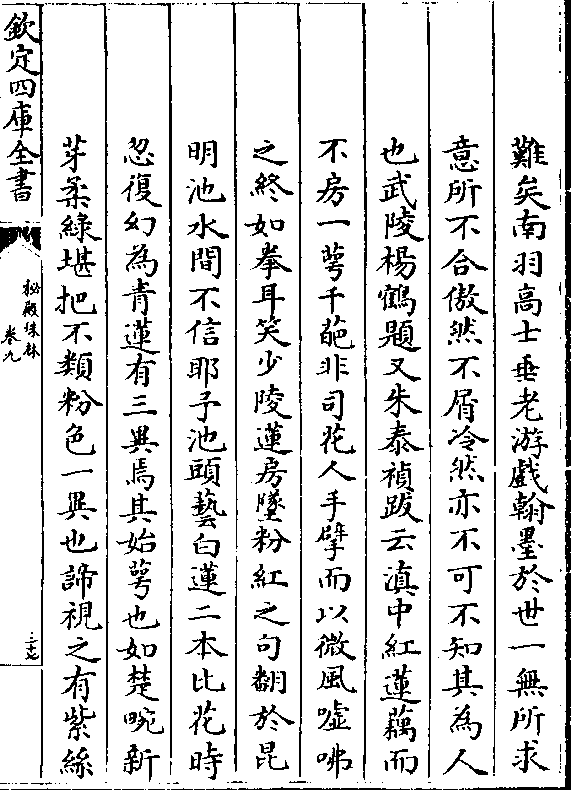 難矣南羽高士垂老游戲翰墨於世一無所求
意所不合傲然不屑冷然亦不可不知其為人
也武陵楊鶴題又朱泰禎跋云滇中紅蓮藕而
不房一萼千葩非司花人手擘而以微風噓咈
之終如拳耳笑少陵蓮房墜粉紅之句翻於昆
明池水間不信耶予池頭藝白蓮二本比花時
忽復幻為青蓮有三異焉其始萼也如楚畹新
芽柔綠堪把不類粉色一異也諦視之有紫絲
欽定四庫全書
秘殿珠林
卷九